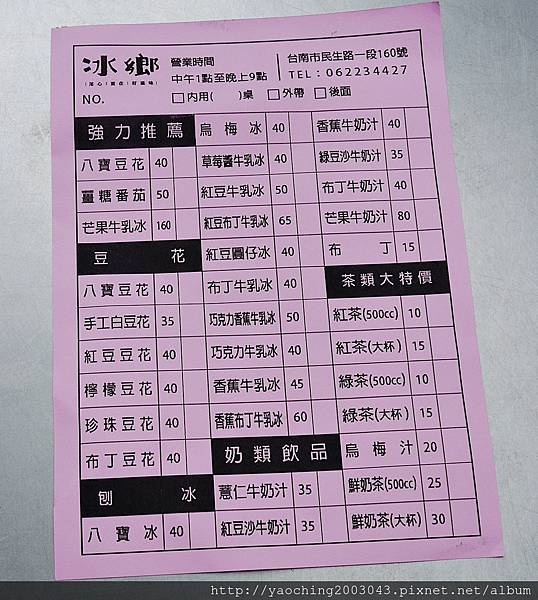 冰鄉
用心|實在|好滋味
營業時間
中午1點至晚上9點
台南市民生路一段160號
TEL：062234427
NO.
□內用( )桌 □外帶 □後面
強力推薦
八寶豆花 40
薑糖番茄 50
芒果牛乳冰 160
豆花
八寶豆花 40
手工白豆花 35
紅豆豆花 40
檸檬豆花 40
珍珠豆花 40
布丁豆花 40
刨冰
八寶冰 40
烏梅冰 40
草莓醬牛乳冰 40
紅豆牛乳冰 50
紅豆布丁牛乳冰 65
紅豆圓仔冰 40
布丁牛乳冰 40
巧克力香蕉牛乳冰 50
巧克力牛乳冰 40
香蕉牛乳冰 45
香蕉布丁牛乳冰 60
奶類飲品
薏仁牛奶汁 35
紅豆沙牛奶汁 35
香蕉牛奶汁 40
綠豆沙牛奶汁 35
布丁牛奶汁 40
芒果牛奶汁 80
布丁 15
茶類大特價
紅茶(500cc) 10
紅茶(大杯) 15
綠茶(500cc) 10
綠茶(大杯) 15
烏梅汁 20
鮮奶茶(500cc) 25
鮮奶茶(大杯) 30
http://yaoching2003043.pixnet.net/album